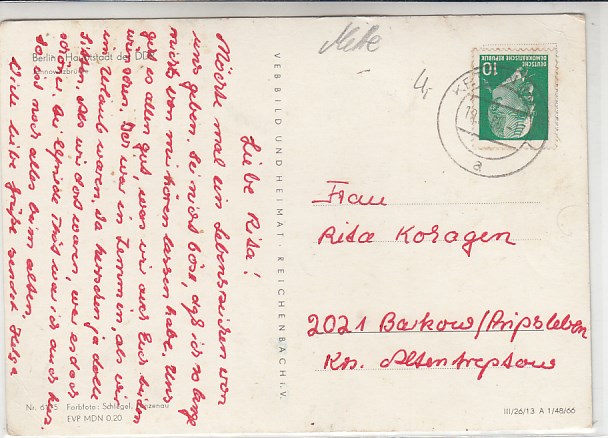 Berlin, Hauptstadt der DDR
Jannowitzbrücke
Liebe Rita!
Möchte mal ein Lebenszeichen von
uns geben. Sei nicht böse, daß ich so lange
nichts von mir hören lassen habe. Uns
geht es allen gut, was wir auch Euch beiden
wünschen. War in Zemmin, als wir
im Urlaub waren, da herrschen ja dolle
Sitten. Als wir dort waren, war es doch
schöner. Bei Elfriede war ich auch
so ist noch alles beim alten.
Viele liebe Grüße sendet Helga
VEB BILD UND HEIMAT · REICHENBACH i. V.
Nr. 6195 Farbfoto: Schlegel,
EVP MDN 0.20
DEUTSCHE
DEMOKRATISCHE REPUBLIK
10
a
Frau
Rita Koragen
2021 Barkow/Pripsleben
Krs. Altentreptow
III/26/13 A 1/48/66